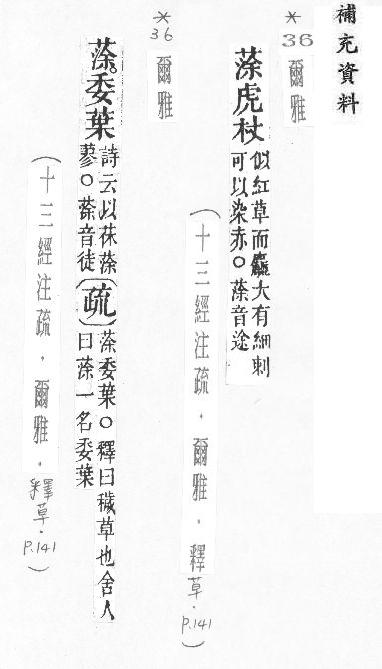 補充資料
*36 爾雅
蒤虎杖 似紅草而麤大有細刺
可以染赤○蒤音途
(十三經注疏．爾雅．釋草．P.141)
*36 爾雅
蒤委葉 詩云以茠蒤
蓼○蒤音徒〔疏〕蒤委葉○釋曰穢草也舍人
曰蒤一名委葉
(十三經注疏．爾雅．釋草．P.141)